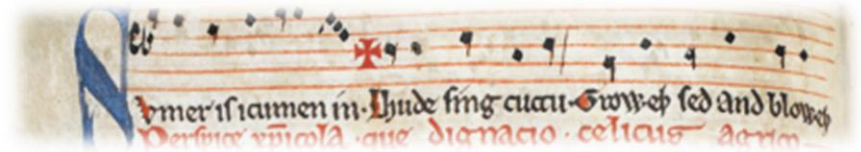 Svmer is icumen in· Lhude sing cuccu· Groweþ sed and bloweþ
Perspice xp̄icola· que dignacio· celicus agrico